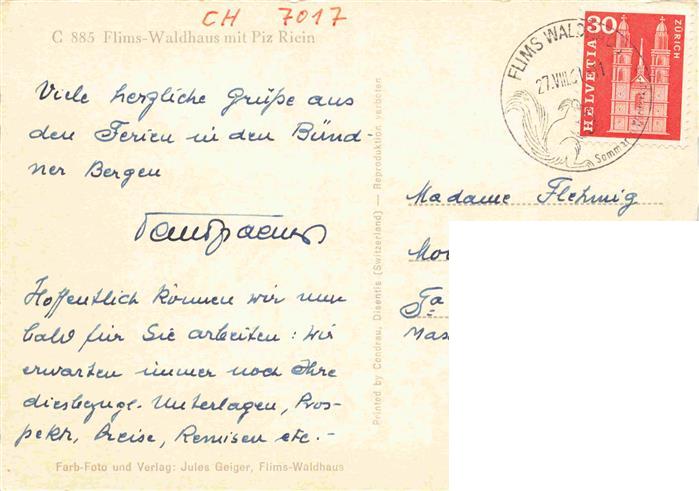 CH 7017
C 885 Flims-Waldhaus mit Piz Riein
Viele herzliche Grüße aus
den Ferien in den Bünd-
ner Bergen
Hoffentlich können wir nun
bald für Sie arbeiten: Wir
erwarten immer noch Ihre
diesbezügl. Unterlagen, Pros-
pekt, Preise, Remisen etc.-
Farb-Foto und Verlag: Jules Geiger, Flims-Waldhaus
Printed by Condrau, Disentis (Switzerland) — Reproduktion verboten
FLIMS WALD
27.VIII.
Sommer
30
HELVETIA
ZÜRICH
Madame Flehmig